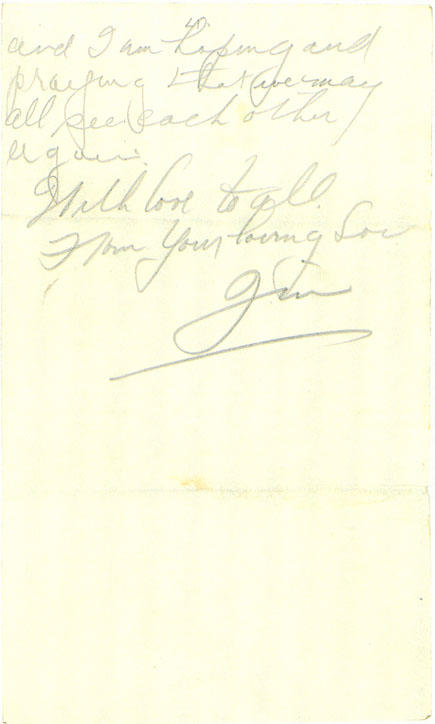 and I am hoping and
praying that we may
all see each other
again.
With love to all.
From Your loving Son
Jim